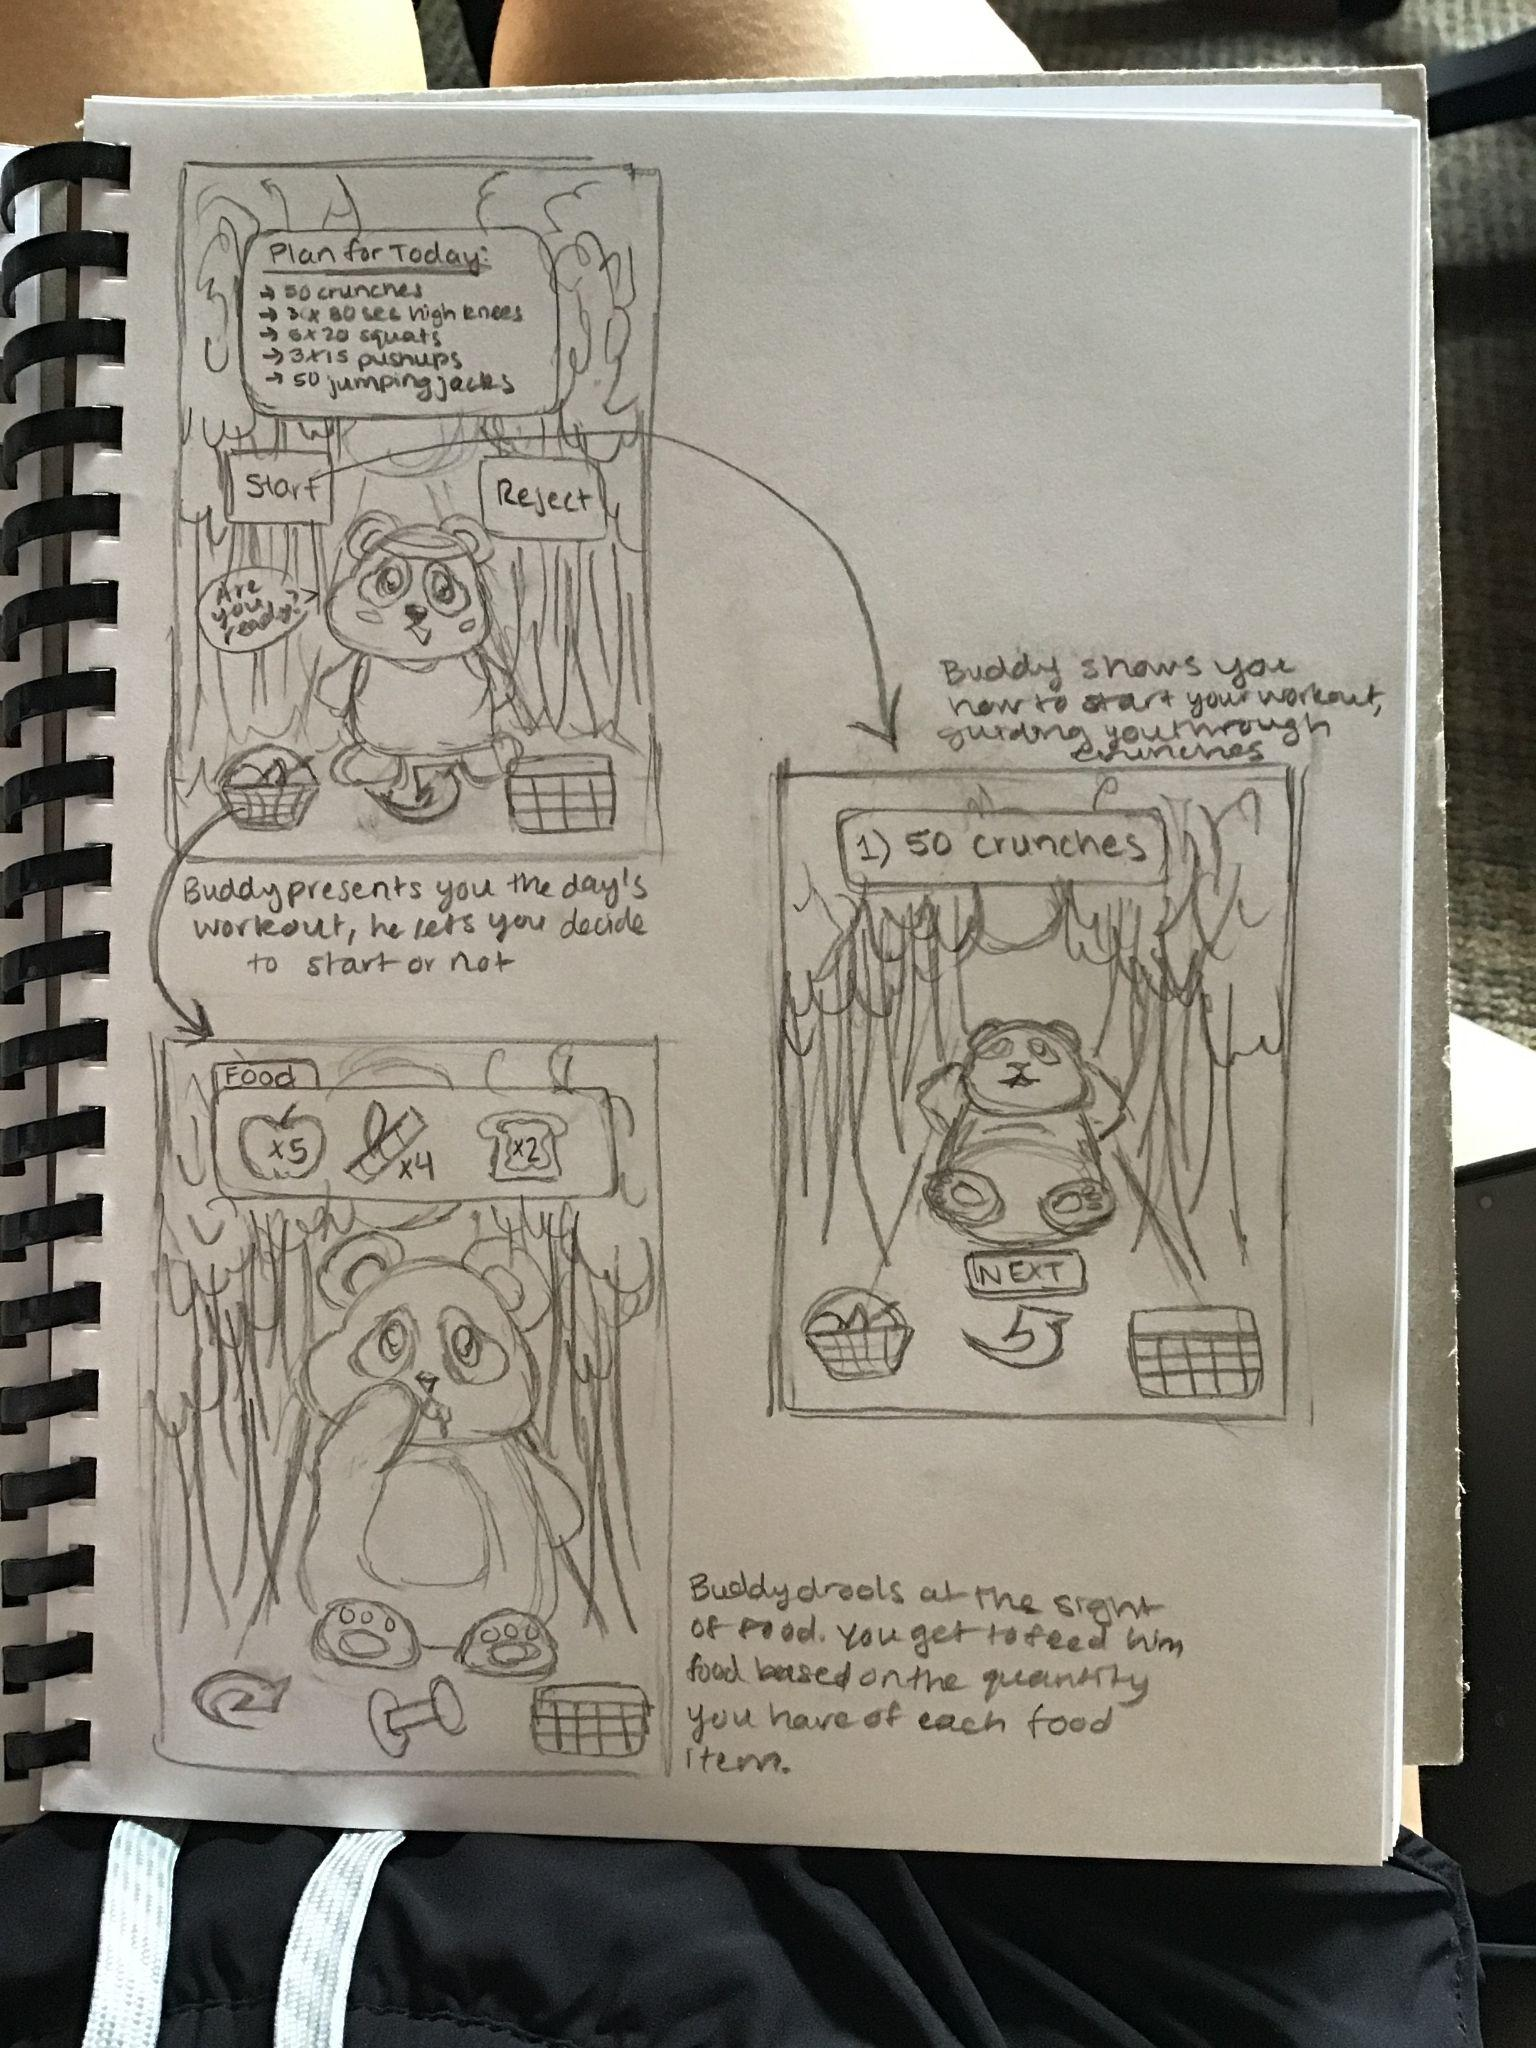 Plan for Today:
→ 50 crunches
→ 3x 80 sec high knees
→ 5x20 squats
→ 3x15 pushups
→ 50 jumping jacks
Start
Reject
Are
you
ready?
Buddy presents you the day's
workout, he lets you decide
to start or not
Buddy shows you
how to start your workout,
guiding you through
crunches
1) 50 crunches
NEXT
Food
x5
x4
x2
Buddy drools at the sight
of food. You get to feed him
food based on the quantity
you have of each food
item.